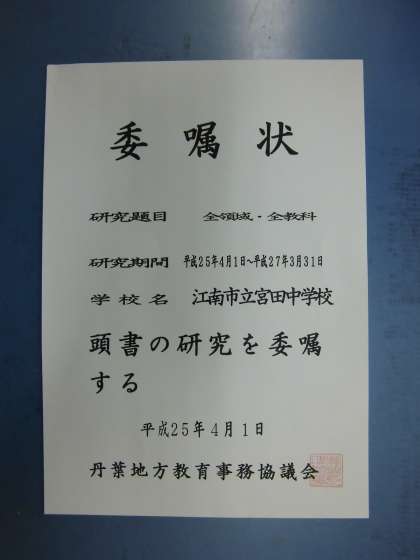 委嘱状
研究題目 全領域・全教科
研究期間 平成25年4月1日～平成27年3月31日
学校名 江南市立宮田中学校
頭書の研究を委嘱
する
平成25年4月1日
丹葉地方教育事務協議会